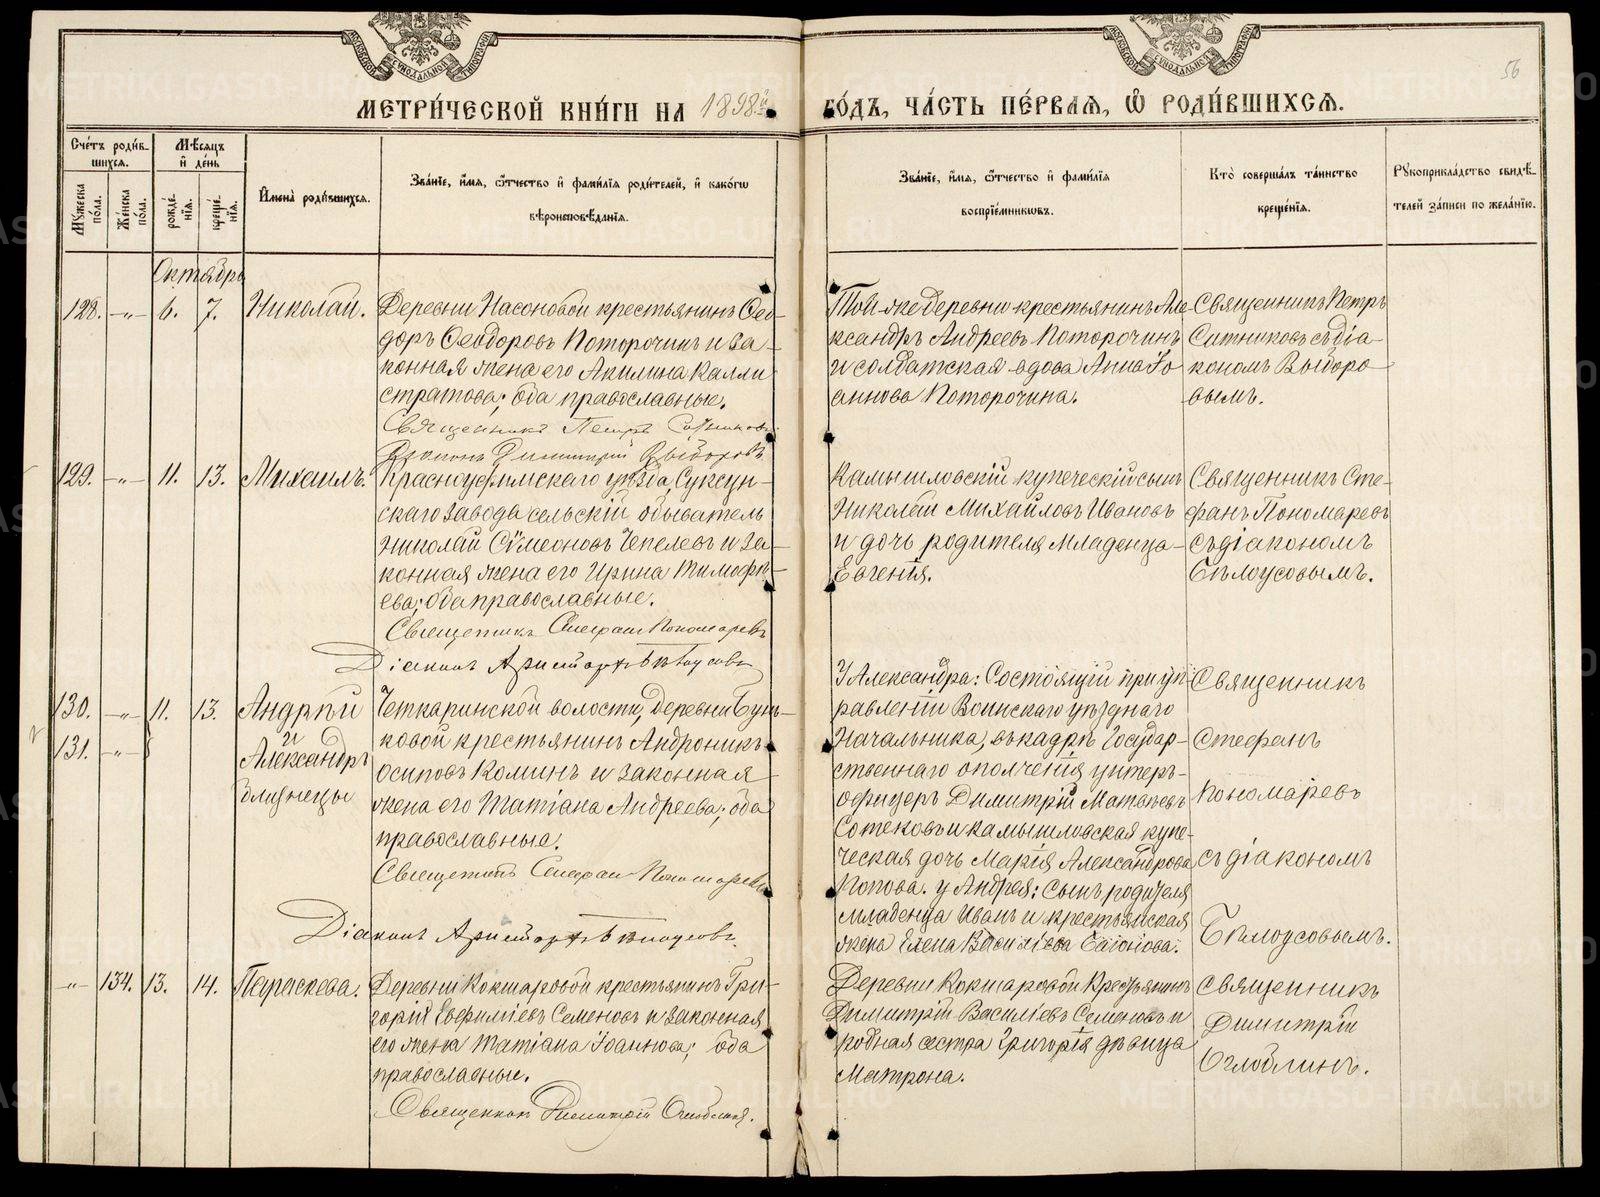 56
МЕТРИ́ЧЕСКОЙ КНИ́ГИ НА 1898й ГО́ДЪ, ЧА́СТЬ ПЕ́РВАЯ, Ѡ҆ РОДИ́ВШИХСЯ.
Сче́тъ роди́в-
шихся.
Мꙋ́жеска по́ла.
Же́нска по́ла.
Мѣ́сяцъ
и҆ де́нь
рожде́-
нїя.
креще́-
нїя.
И҆мена̀ роди́вшихся.
Зва́нїе, и҆́мя, ѻ҆́тчество и҆ фами́лїя роди́телей, и҆ како́гѡ
вѣроисповѣ́данїя.
Зва́нїе, и҆́мя, ѻ҆́тчество и҆ фами́лїя
воспрїе́мникѡвъ.
Кто̀ соверша́лъ та́инство
креще́нїя.
Рꙋкоприкла́дство свидѣ́-
телей за́писи по жела́нїю.
Октябрь
128. -„- 6. 7. Николай.
Деревни Насоновой крестьянинъ Ѳео-
доръ Ѳеодоровъ Поторочинъ и за-
конная жена его Акилина Калли
стратова; оба православные.
Священникъ Петръ Ситниковъ
Діаконъ Димитрій Выборовъ
Той-же деревни крестьянинъ Але-
ксандръ Андреевъ Поторочинъ
и солдатская вдова Анна Іо
аннова Поторочина.
Священникъ Петръ
Ситниковъ съ діа-
кономъ Выборо
вымъ.
129. -„- 11. 13. Михаилъ.
Красноуфимскаго уѣзда, Суксун-
скаго завода сельскій обыватель
Николай Сѵмеоновъ Чепелевъ и за-
конная жена его Ирина Тимофѣ-
ева; оба православные.
Священникъ Стефанъ Пономаревъ
Діаконъ Аристархъ Бѣлоусовъ
Камышловскій купеческій сынъ
Николай Михайловъ Ивановъ
и дочь родителя младенца-
Евгенія.
Священникъ Сте-
фанъ Пономаревъ
съ діакономъ
Бѣлоусовымъ.
130. -„- 11. 13. Андрѣй
131. -„-
и
Александръ
близнецы
Четкаринской волости, деревни Бунь-
ковой крестьянинъ Андроникъ
Осиповъ Коминъ и законная
жена его Татіана Андреева; оба
православные.
Священникъ Стефанъ Пономаревъ
Діаконъ Аристархъ Бѣлоусовъ.
У Александра: Состоящій при уп-
равленіи Воинскаго уѣзднаго
Начальника, въ кадрѣ Государ-
ственнаго ополченія унтеръ-
офицеръ Димитрій Матвѣевъ
Сотековъ и камышловская купе-
ческая дочь Марія Александрова
Попова. у Андрея: сынъ родителя
младенца Иванъ и крестьянская
жена Елена Василіева
Священникъ
Стефанъ
Пономаревъ
съ діакономъ
Бѣлоусовымъ.
-„- 134. 13. 14. Параскева.
Деревни Кокшаровой крестьянинъ Гри-
горій Евфиміевъ Семеновъ и законная
его жена Татіана Іоаннова; оба
православные.
Священникъ Димитрій Оглоблинъ.
Деревни Кокшаровой крестьянинъ
Димитрій Василіевъ Семеновъ и
родная сестра Григорія дѣвица
Матрона.
Священникъ
Димитрій
Оглоблинъ.